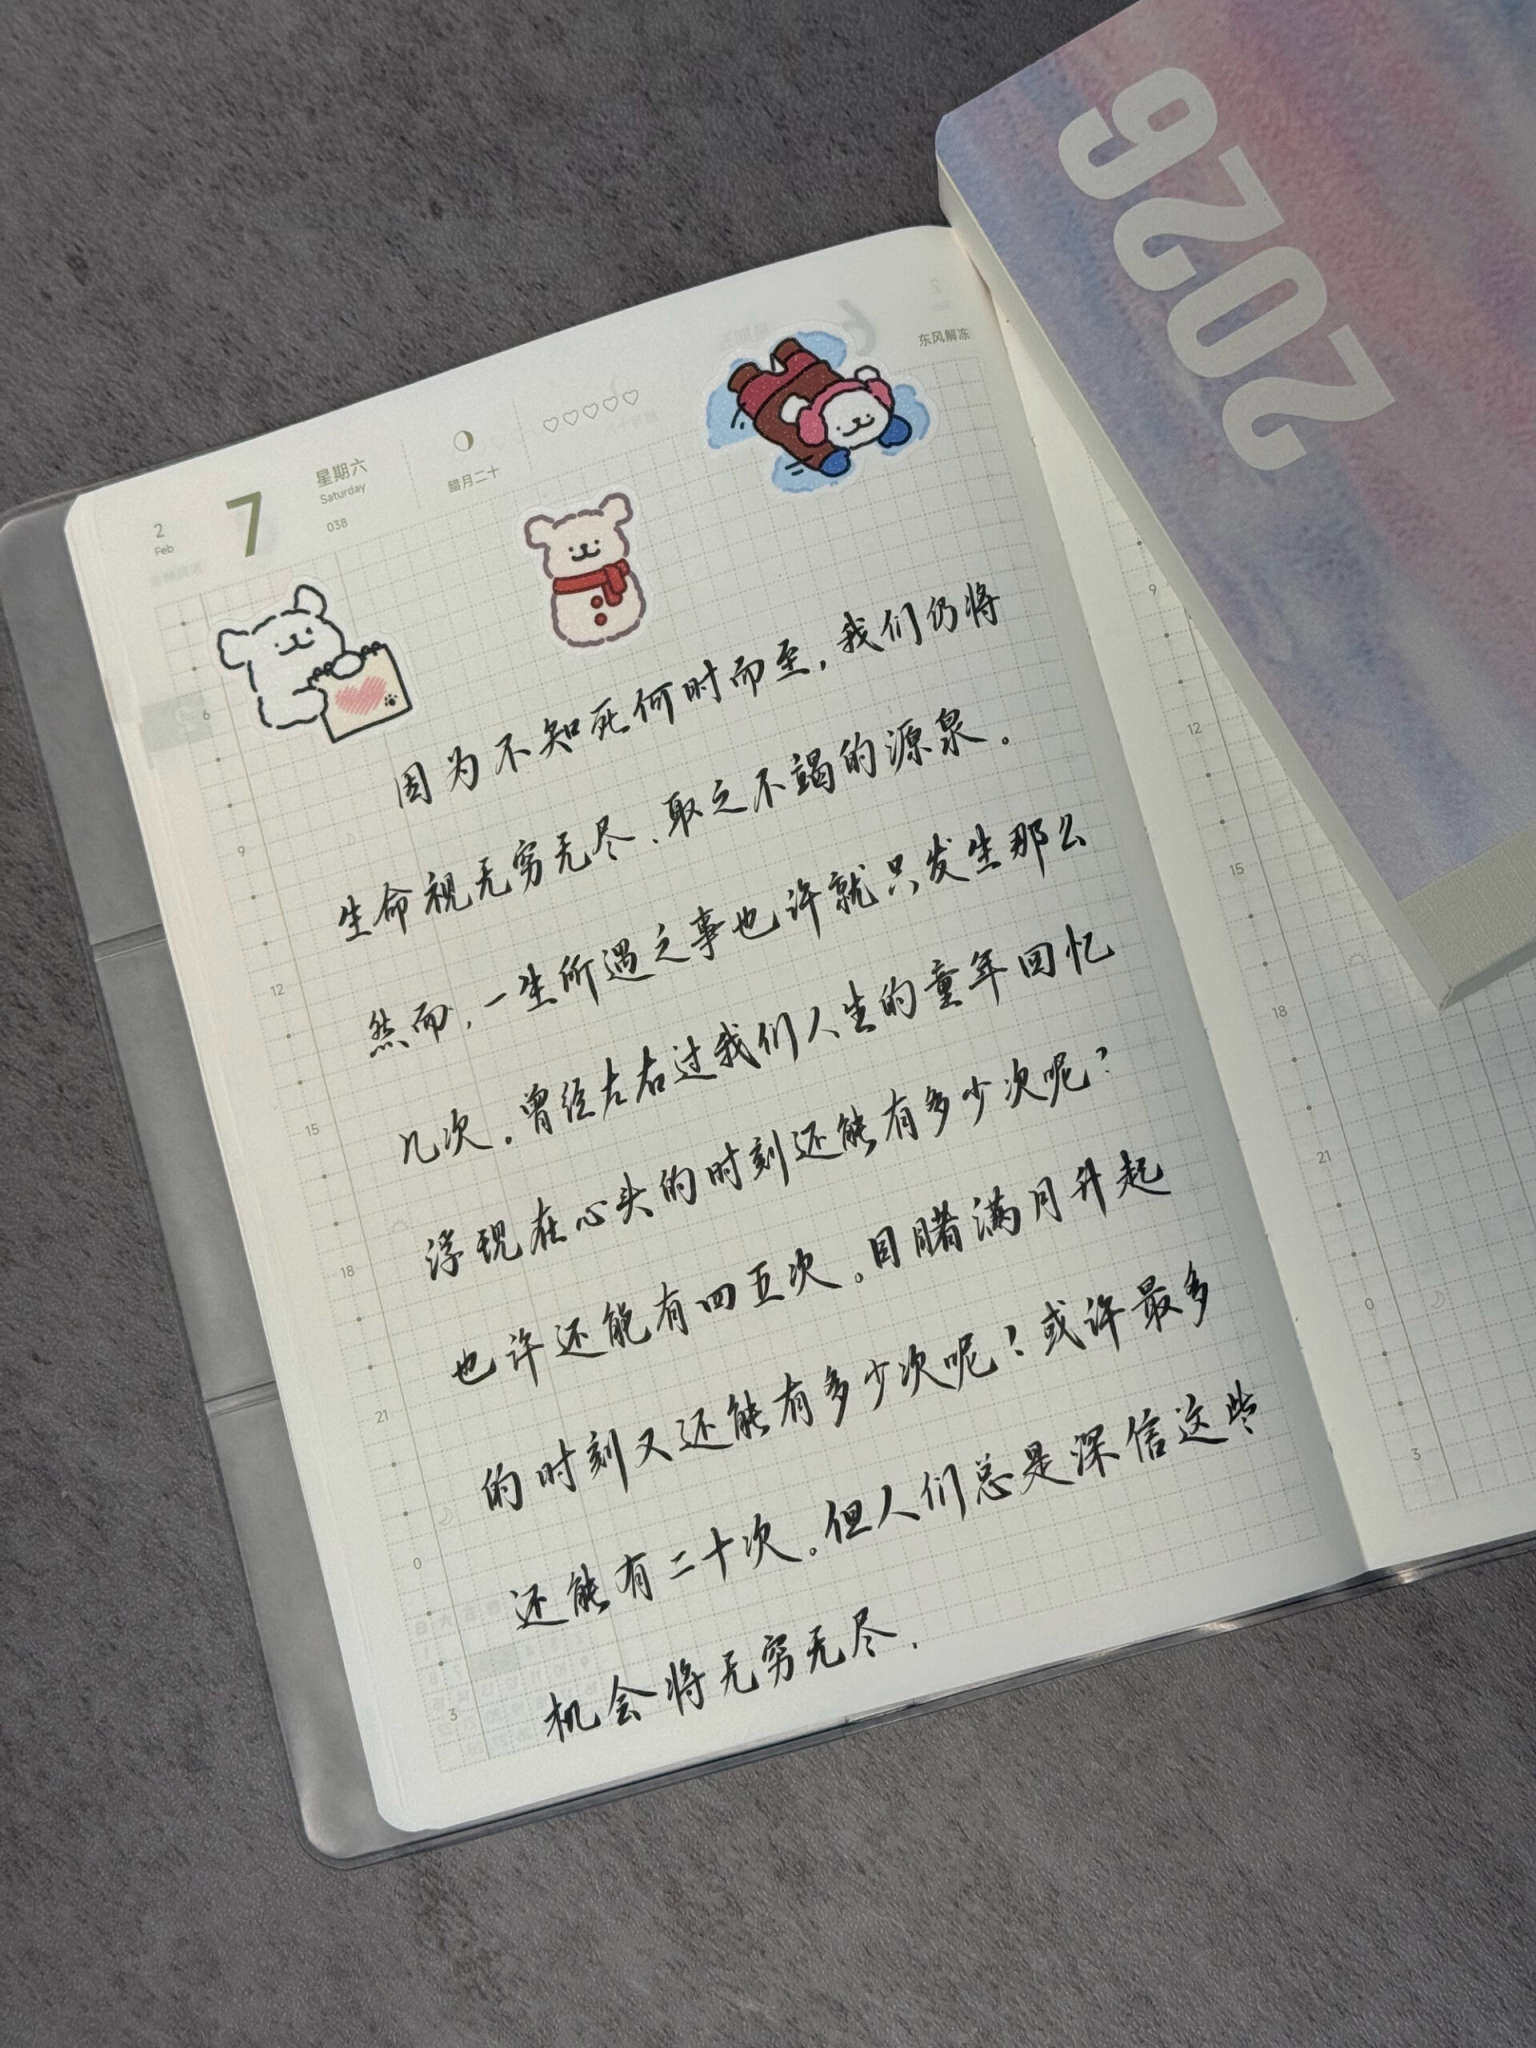 2026
东风解冻
2
Feb
7
星期六
Saturday
038
腊月二十
因为不知死何时而至，我们仍将
生命视无穷无尽、取之不竭的源泉。
然而，一生所遇之事也许就只发生那么
几次。曾经左右过我们人生的童年回忆
浮现在心头的时刻还能有多少次呢？
也许还能有四五次。目睹满月升起
的时刻又还能有多少次呢？或许最多
还能有二十次。但人们总是深信这些
机会将无穷无尽.
6
9
12
15
18
21
0
3
9
12
15
18
21
0
3